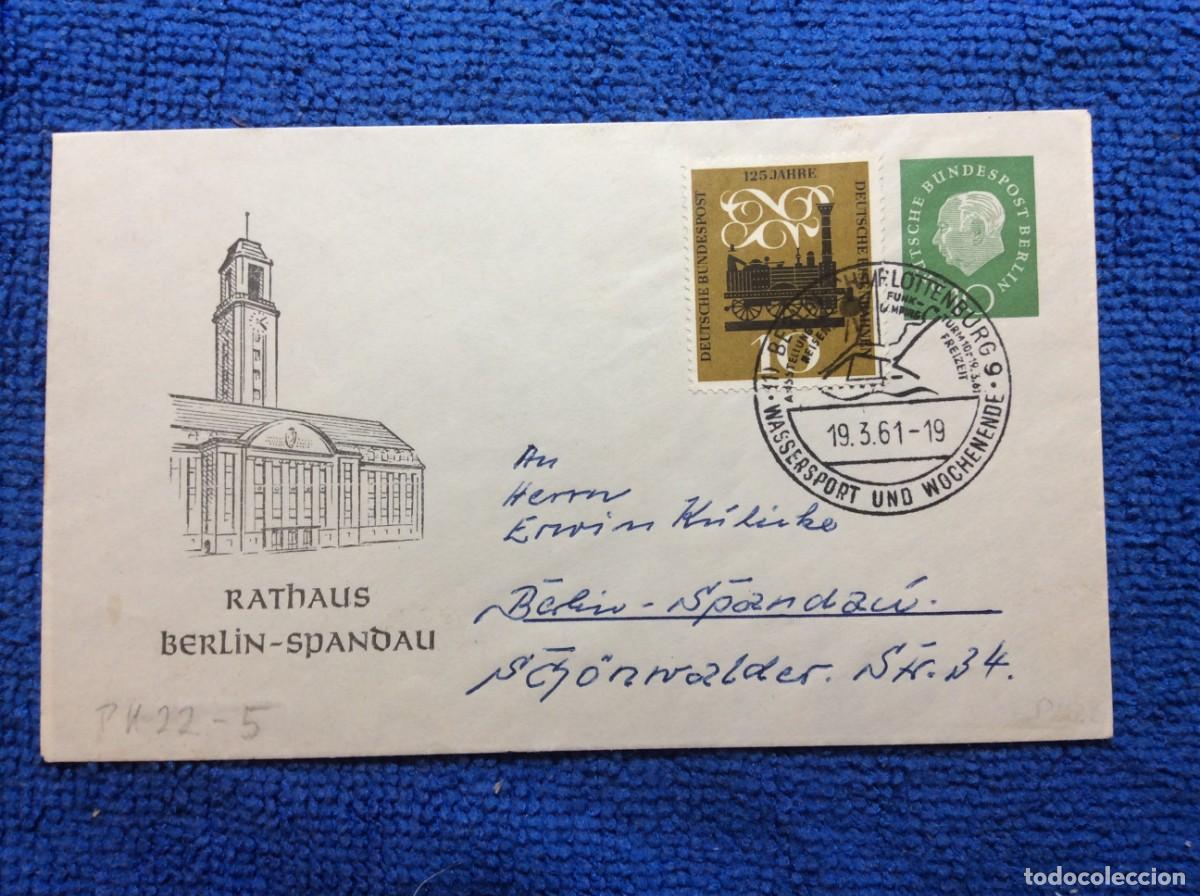 125 JAHRE
DEUTSCHE BUNDESPOST
DEUTSCHE
10
DEUTSCHE BUNDESPOST BERLIN
LOTTENBURG 9
FUNK-
AUSSTELLUNG
REISEN
FREIZEIT
19.3.61-19
WASSERSPORT UND WOCHENENDE
An
Herrn
Erwin Kulicke
Berlin-Spandau.
Schönwalder. Str. 34.
RATHAUS
BERLIN-SPANDAU
PK 22-5
todocoleccion